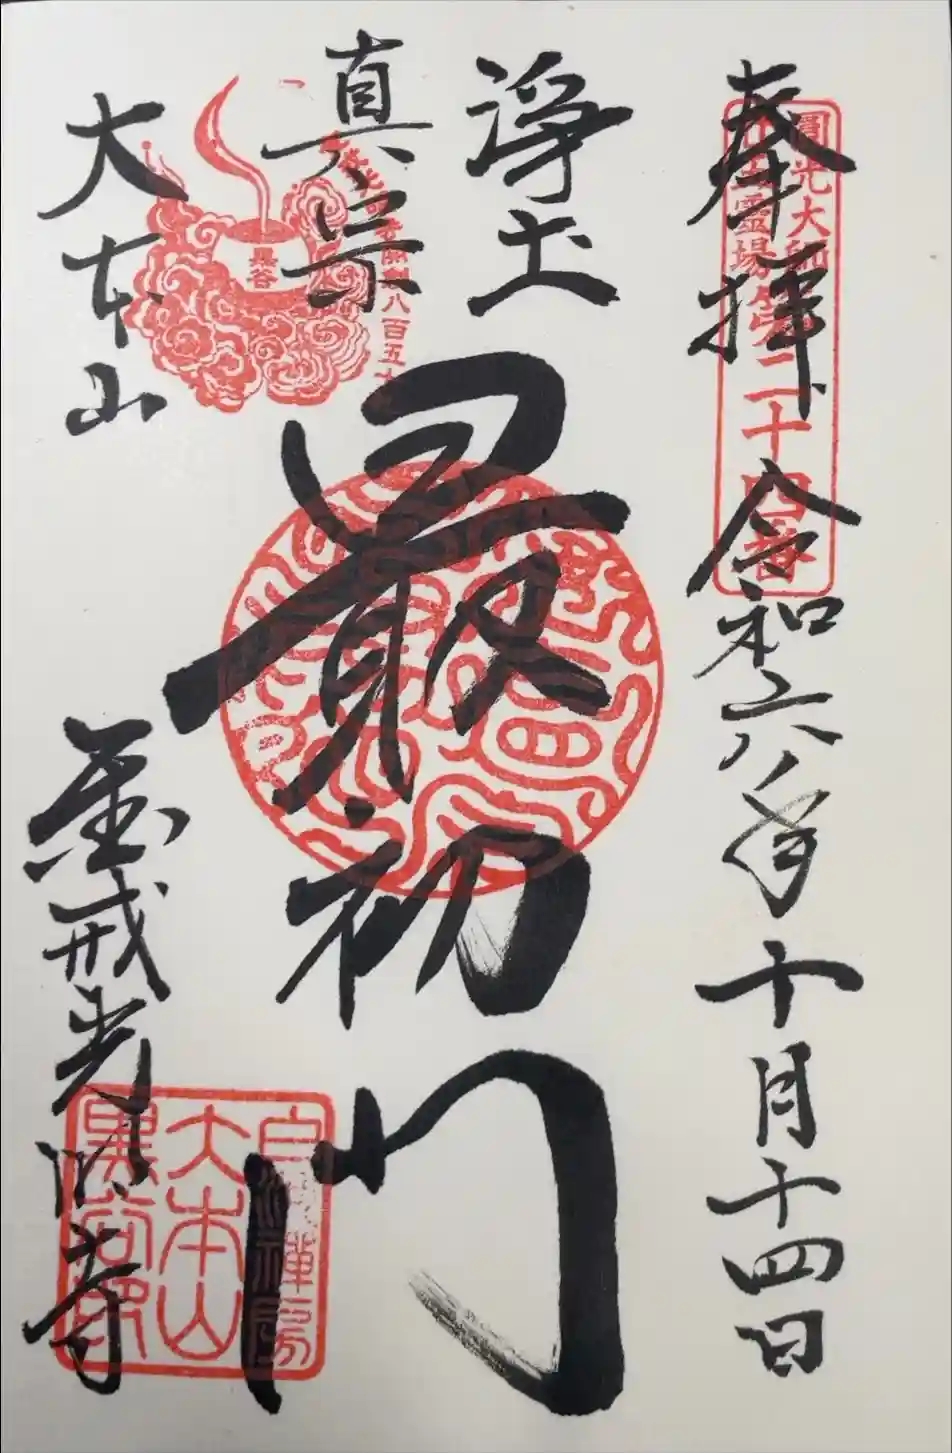 奉拝
令和六年十月十四日
圓光大師
霊場第二十四番
浄土
真宗
最初門
黒谷
八百五十
大本山
金戒光明寺
大本山
黒谷